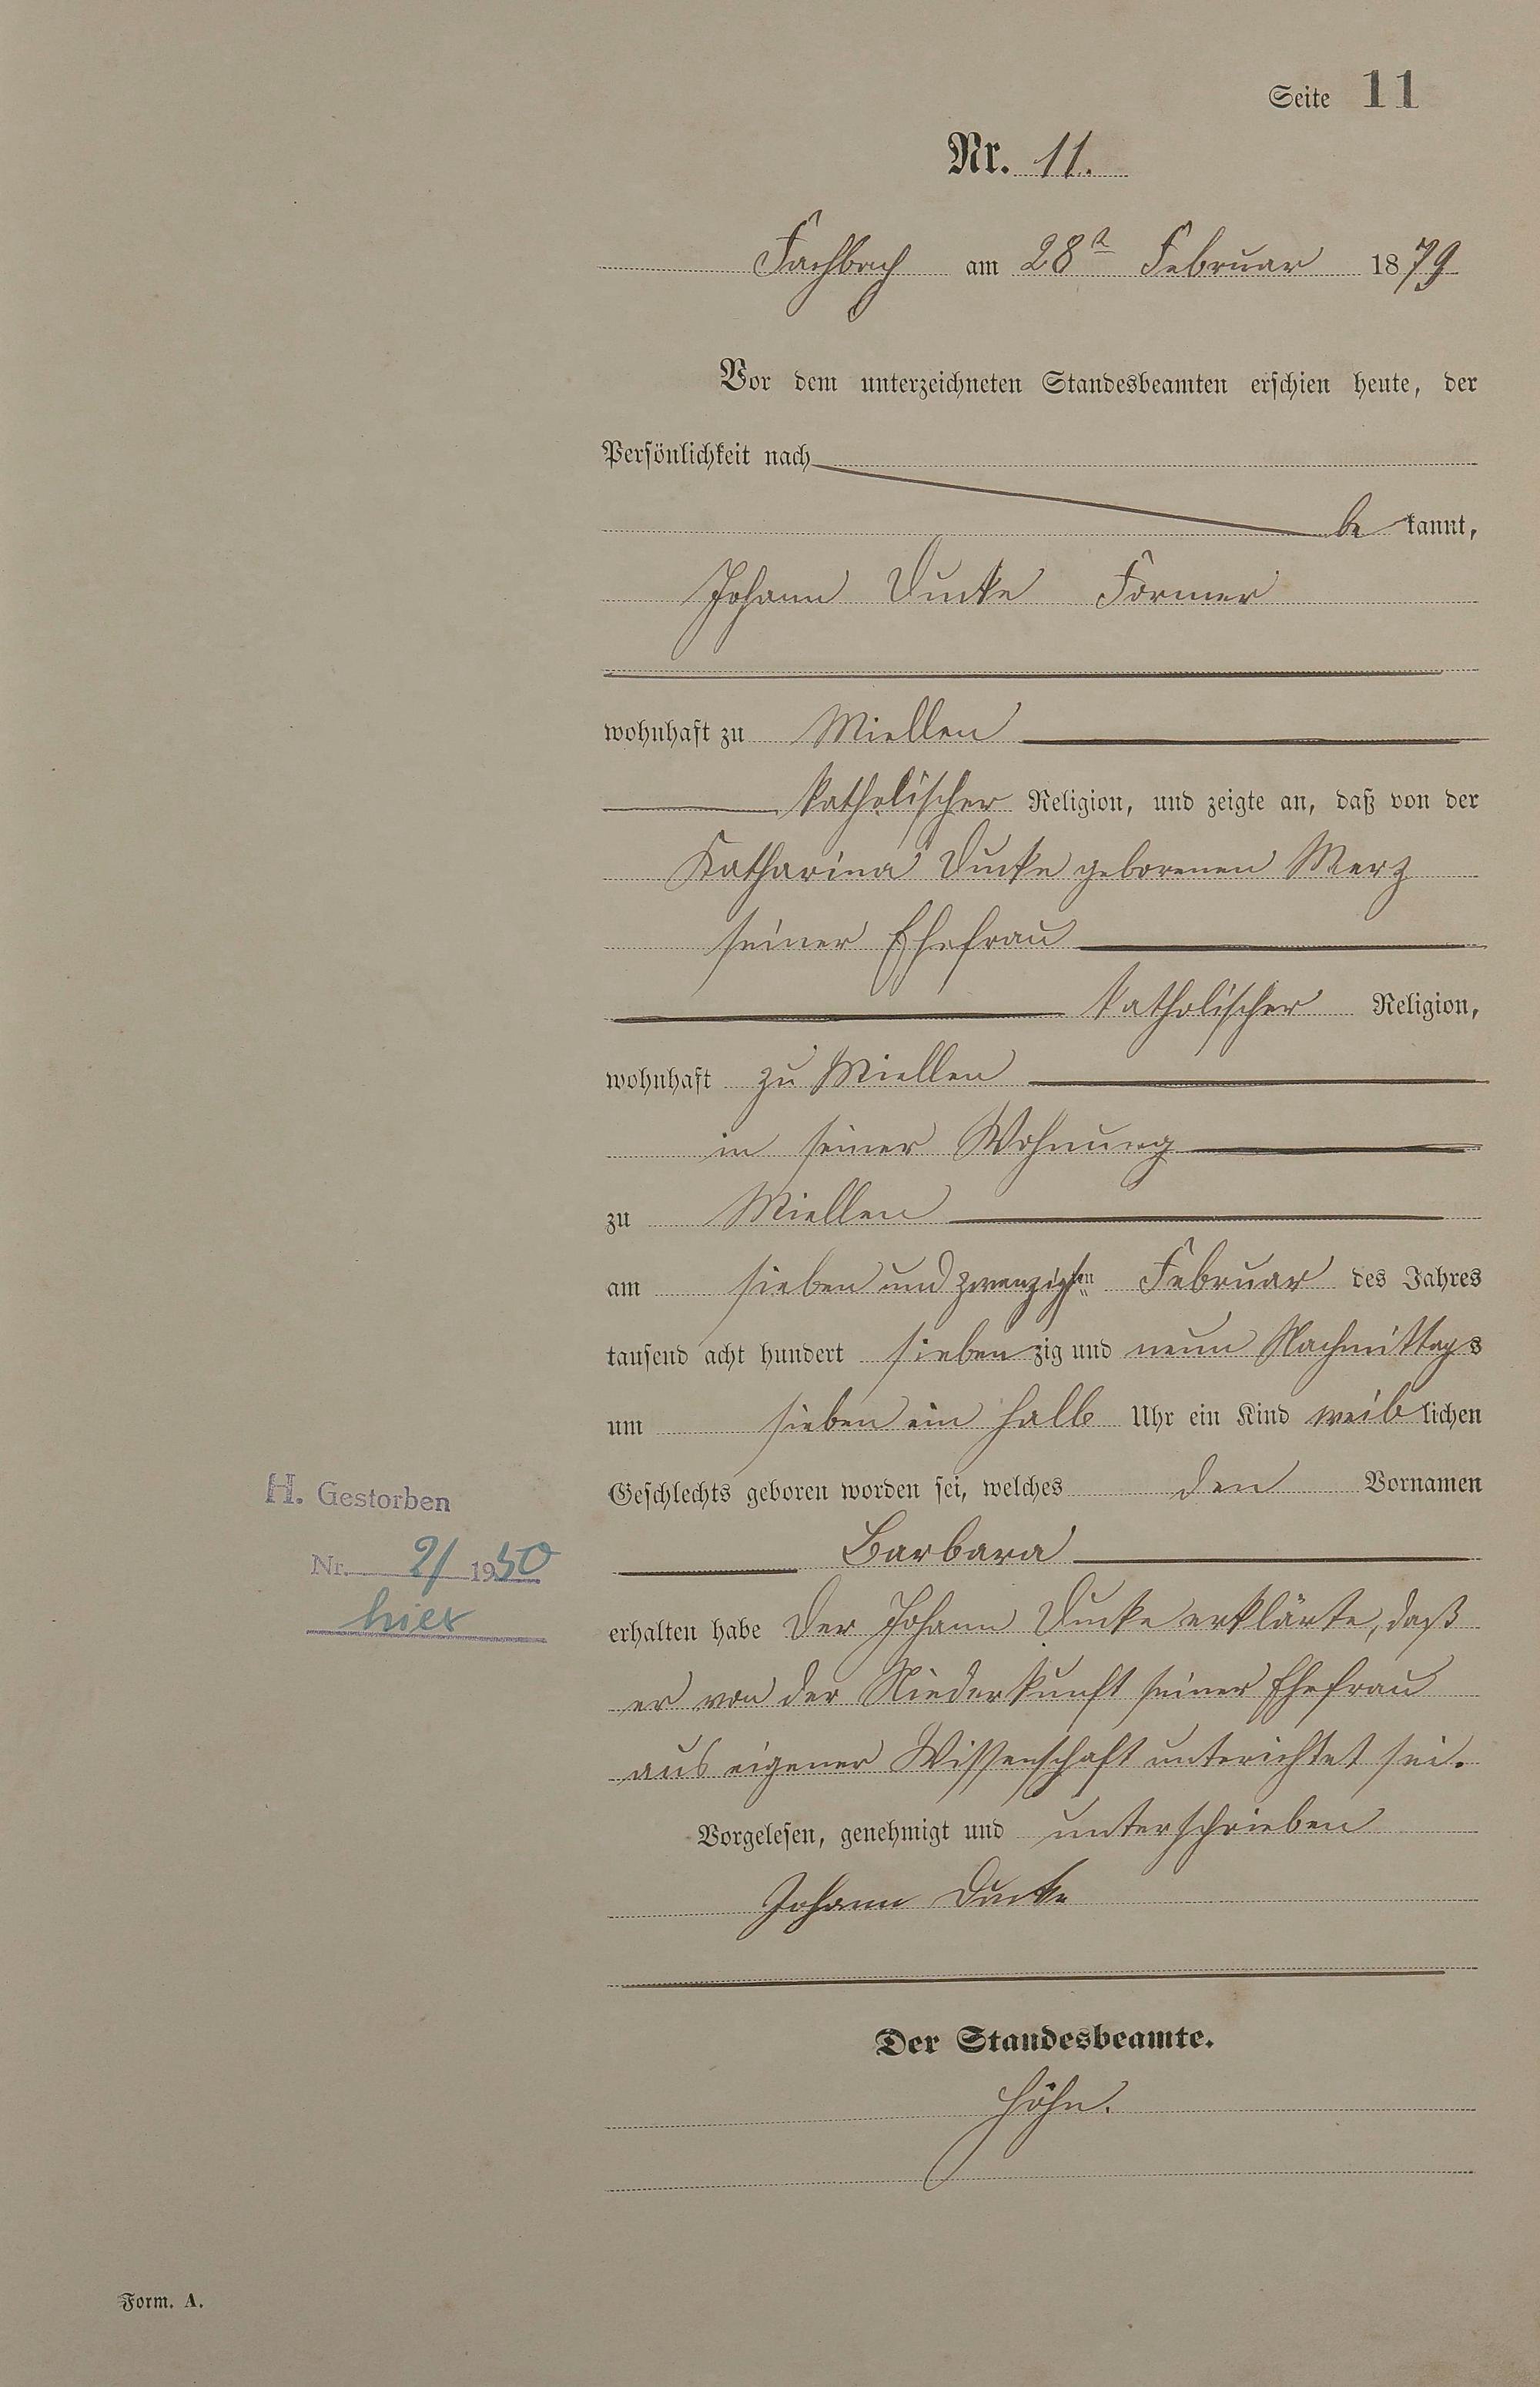 Seite 11
Nr. 11.
Fachbach am 28t Februar 1879
Vor dem unterzeichneten Standesbeamten erschien heute, der
Persönlichkeit nach
be kannt,
Johann Ducke Former
wohnhaft zu Miellen
katholischer Religion, und zeigte an, daß von der
Katharina Ducke geborenen Merz
seiner Ehefrau
katholischer Religion,
wohnhaft zu Miellen
in seiner Wohnung
zu Miellen
am sieben und zwanzigsten Februar des Jahres
tausend acht hundert sieben zig und neun Nachmittags
um sieben ein halb Uhr ein Kind weiblichen
Geschlechts geboren worden sei, welches den Vornamen
H. Gestorben
Barbara
Nr. 2/ 1950
hier
erhalten habe Der Johann Ducke erklärte, daß
er von der Niederkunft seiner Ehefrau
aus eigener Wissenschaft unterichtet sei.
Vorgelesen, genehmigt und unterschrieben
Johann Ducke
Der Standesbeamte.
Höhn.
Form. A.